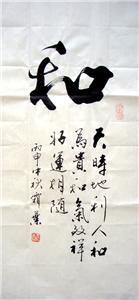 和
天時地利人和
為貴和氣致祥
好運相隨
丙申中秋